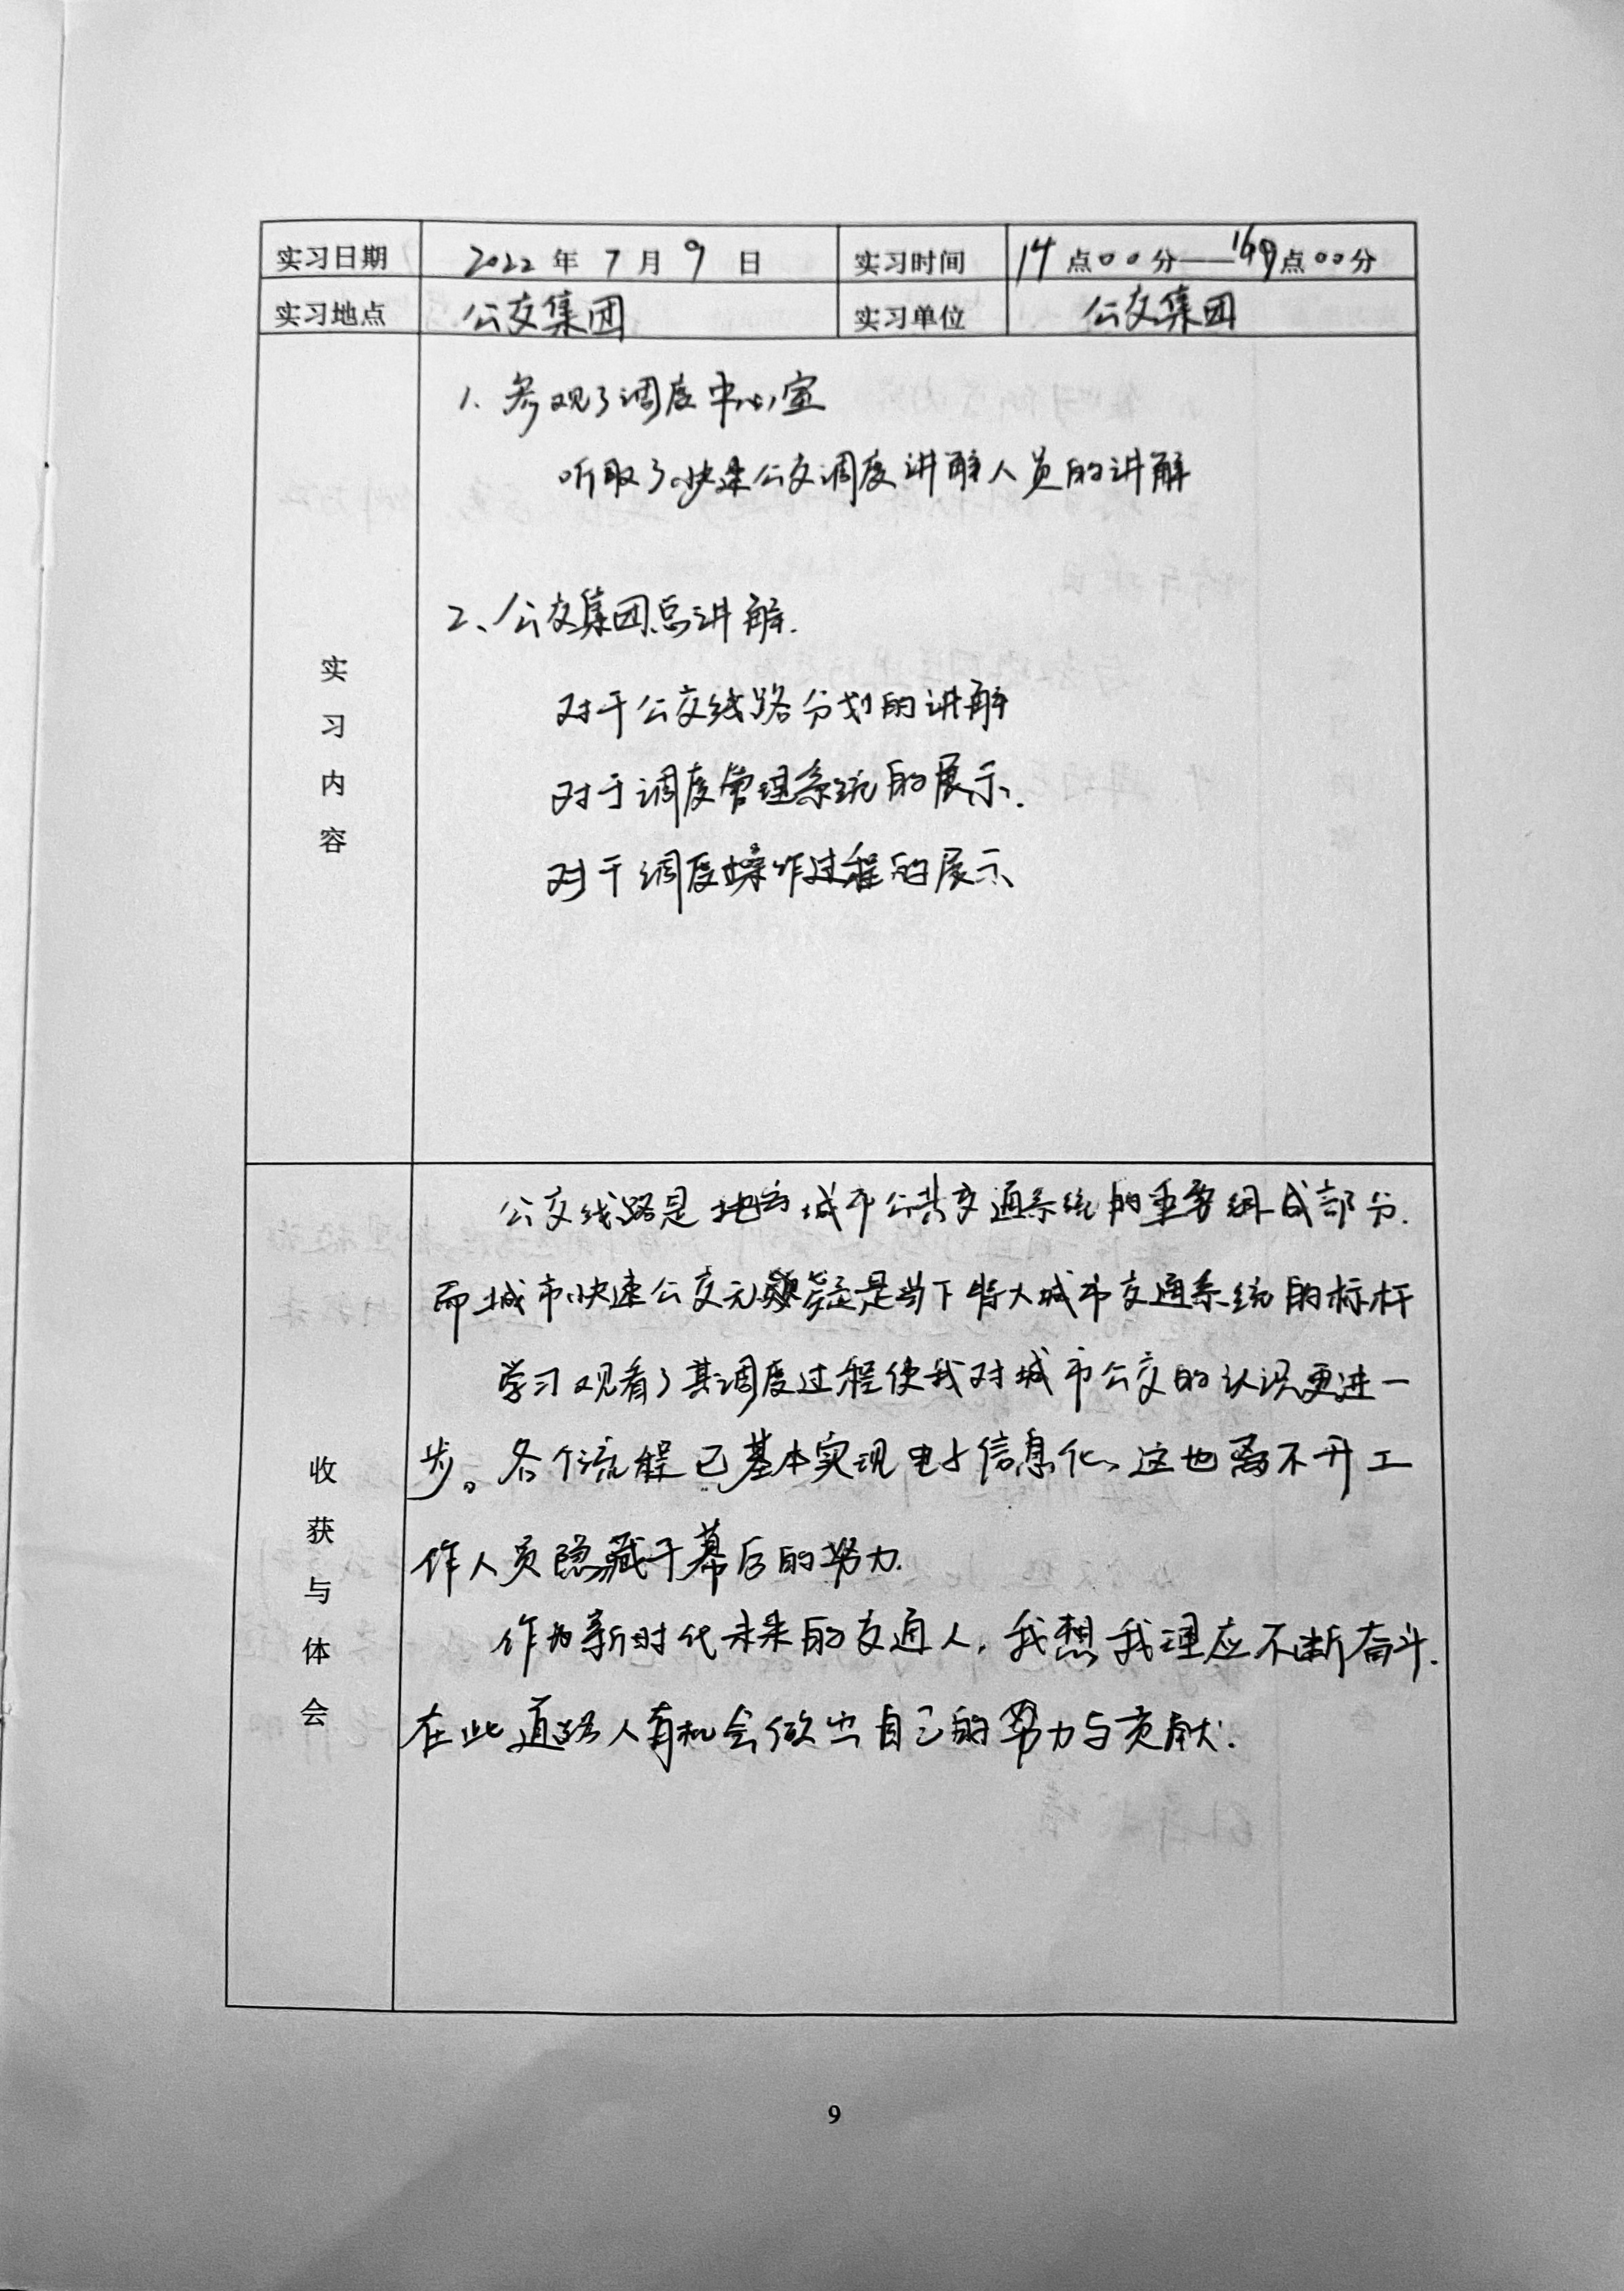 实习日期 2022年7月9日 实习时间 14点00分——点00分
实习地点 公交集团 实习单位 公交集团
实习内容
1. 参观了调度中心室
听取了快速公交调度讲解人员的讲解
2、公交集团总讲解.
对于公交线路分划的讲解
对于调度管理系统的展示.
对于调度操作过程的展示
收获与体会
公交线路是 城市公共交通系统的重要组成部分.
而城市快速公交无疑是当下特大城市交通系统的标杆
学习观看了其调度过程使我对城市公交的认识更进一
步。各个流程已基本实现电子信息化,这也离不开工
作人员隐藏于幕后的努力.
作为新时代未来的交通人,我想我理应不断奋斗.
在此道路人有机会做出自己的努力与贡献.
9